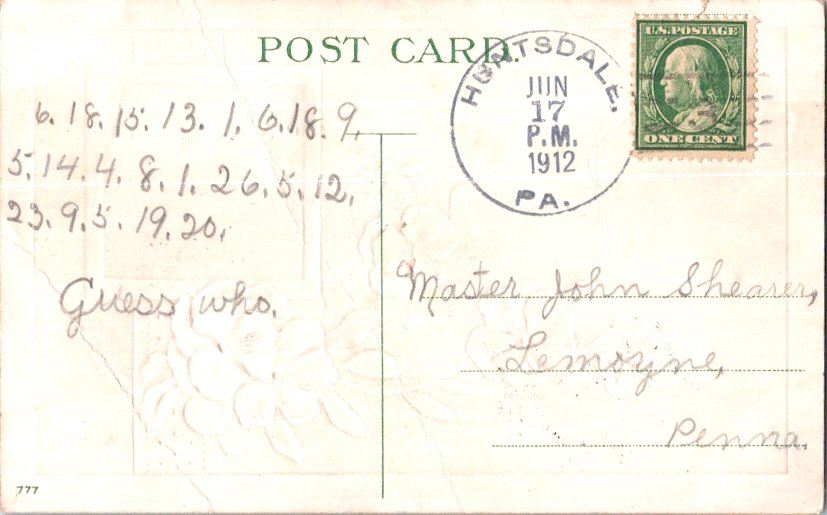 POST CARD.
HUNTSDALE,
JUN
17
P.M.
1912
PA.
U.S. POSTAGE
ONE CENT
6. 18. 15. 13. 1. 6. 18. 9.
5. 14. 4. 8. 1. 26. 5. 12.
23. 9. 5. 19. 20.
Guess who.
Master John Shearer,
Lemoyne,
Penna.
777